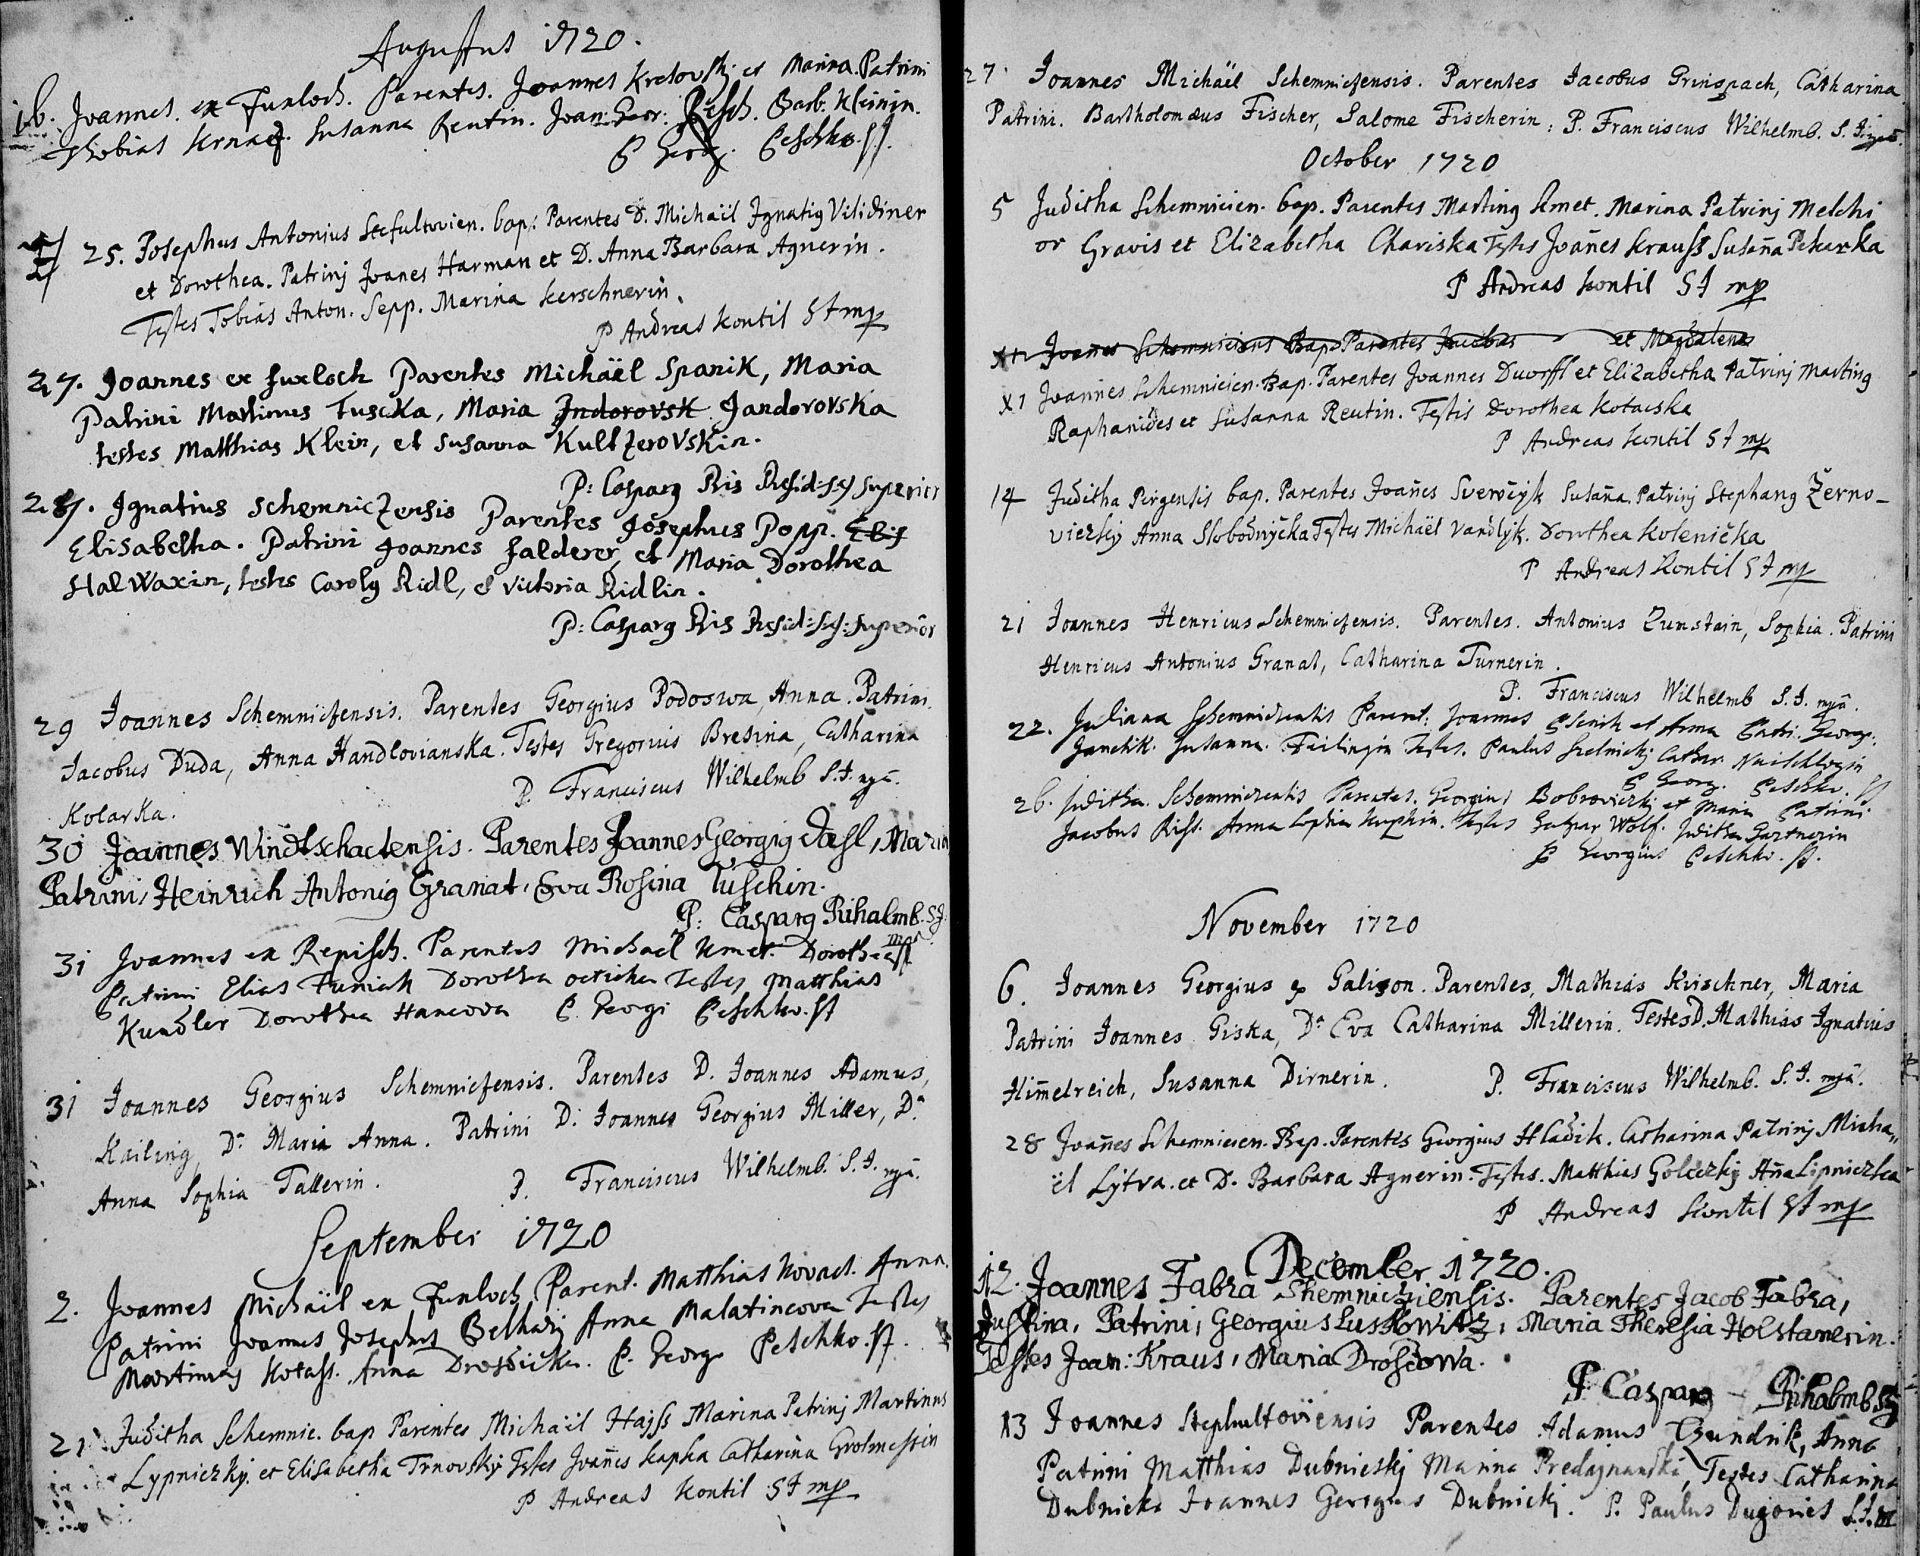 Augustus 1720.
16. Joannes ex Funloch. Parentes. Joannes Kretovskj et Marina. Patrini
Thobias Krnacz. Susanna Reutin. Joan: Geor: Barb. Kleinin.
P Georg. Peschko. SJ.
25. Josephus Antonius Stefultovien. bap: Parentes D. Michaël Ignatiq Vilidiner
et Dorothea. Patrinj Joanes Harman et D. Anna Barbara Agnerin.
Testes Tobias Anton. Sepp. Marina Kerschnerin.
P Andreas Kontil SJ mp
27. Joannes ex Fuxloch Parentes Michäel Spanik, Maria
Patrini Martinus Tuscka, Maria Indorovsk Jandorovska
testes Matthias Klein, et Susanna Kultzerovskin.
P: Casparq Ris Resid: Sch: Superior
28. Ignatius Schemniczensis Parentes Josephus Popp. Elis
Elisabetha. Patrini Joannes Falderer, et Maria Dorothea
Halwaxin, testes Carolq Ridl, et Victoria Ridlin.
P: Casparq Ris Resid: Sch: Superior
29 Joannes Schemnicensis. Parentes Georgius Podoswa, Anna. Patrini
Jacobus Duda, Anna Handlovianska. Testes Gregorius Bresina, Catharina
P. Franciscus Wilhelmb S.J. mpa.
Kolarka.
30 Joannes Windtschactensis. Parentes Joannes Georgiq Dasl, Maria
Patrini, Heinrich Antoniq Granat, Eva Rosina Tuschin.
P: Casparq Rihalmb. SJ.
31 Joannes ex Repisch. Parentes Michael Kmet. Dorothea
Patrini Elias Funiak Dorothea Testes Matthias
Kundler Dorothea Hancova P. Georgi Peschko. SJ
31 Joannes Georgius Schemnicensis. Parentes D. Joannes Adamus,
Kailing, Da Maria Anna. Patrini D. Joannes Georgius Miller, Da
Anna Sophia Tallerin. P. Franciscus Wilhelmb. S.J. mpa.
September 1720
2. Joannes Michaïl ex Funloch Parent. Matthias Kovacs. Anna.
Patrini Joannes Josephus Belhazj Anna Malatincova Testes
Martinus Kotass. Anna P. Georg Peschko. SJ.
21. Juditha Schemnic. bap Parentes Michaïl Hajss Marina Patrinj Martinus
Lypniczkj. et Elisabetha Trnovskj Testes Joañes Kapka Catharina Grolmessin
P Andreas Kontil SJ mp
27. Joannes Michäel Schemnicensis. Parentes Jacobus Grinspach, Catharina
Patrini. Bartholomæus Fischer, Salome Fischerin, P. Franciscus Wilhelmb. S.J. mpa.
October 1720
5 Juditha Schemnicien. bap. Parentes Martinq Kmet. Marina Patrinj Melchi
or Gravis et Elizabetha Chariska Testes Joañes Krauss Susaña Pekarka
P Andreas Kontil SJ mp
XI Joañes Schemniciens Bap. Parentes Jacobus et Magdalena
XI Joannes Schemnicien. Bap. Parentes Joannes Duorffl et Elizabetha Patrinj Martinq
Raphanides et Susanna Reutin. Testis Dorothea Kotacska
P Andreas Kontil SJ mp
14 Juditha Pergensis bap. Parentes Joañes Sverčijk Susaña. Patrinj Stephanq Žerno-
viczkij Anna Slobodnyčka Testes Michäel Vandlyk. Dorothea Kolenička
P Andreas Kontil SJ mp
21 Joannes Henricus Schemnicensis. Parentes. Antonius Zumstain, Sophia. Patrini
Henricus Antonius Granat, Catharina Turnerin.
P. Franciscus Wilhelmb S.J. mpa.
22. Juliana Schemniciensis Parent: Joannes et Anna Patri. Georg.
Janetik. Susanna. Testes. Paulus Cathar.
P Georg. Peschko. SJ
26. Juditha Schemniciensis Parentes. Georgius Bobroviczkj et Maria Patrini
Jacobus Riss. Anna Sophia Testes Gaspar Wolf. Juditha Gartnerin
P Georgius Peschko. SJ.
November 1720
6. Joannes Georgius ex Galison. Parentes, Mathias Kirschner, Maria
Patrini Joannes Giska, Da Eva Catharina Millerin. Testes D. Mathias Ignatius
Him̃elreich, Susanna Dirnerin. P. Franciscus Wilhelmb. S.J. mpa.
28 Joañes Schemnicien. Bap. Parentes Georgius Hladik. Catharina Patrinj Micha,,
ël Lytva. et D. Barbara Agnerin. Testes. Matthias Goleczkij Aña Lipniczka
P Andreas Kontil SJ mp
December 1720.
12. Joannes Fabra Shemnicziensis. Parentes Jacob Fabra,
Justina, Patrini, Georgius Luskowitz, Maria Theresia Holstanerin.
Testes Joan: Kraus, Maria Drosdowa.
P. Casparq Rihalmb SJ
13 Joannes Stephultoviensis Parentes Adamus Czundrik, Anna
Patrini Matthias Dubnieskj Marina Predajnanska, Testes Catharina
Dubnicka Joannes Georgius Dubnickj. P. Paulus Dugovics S.J. m